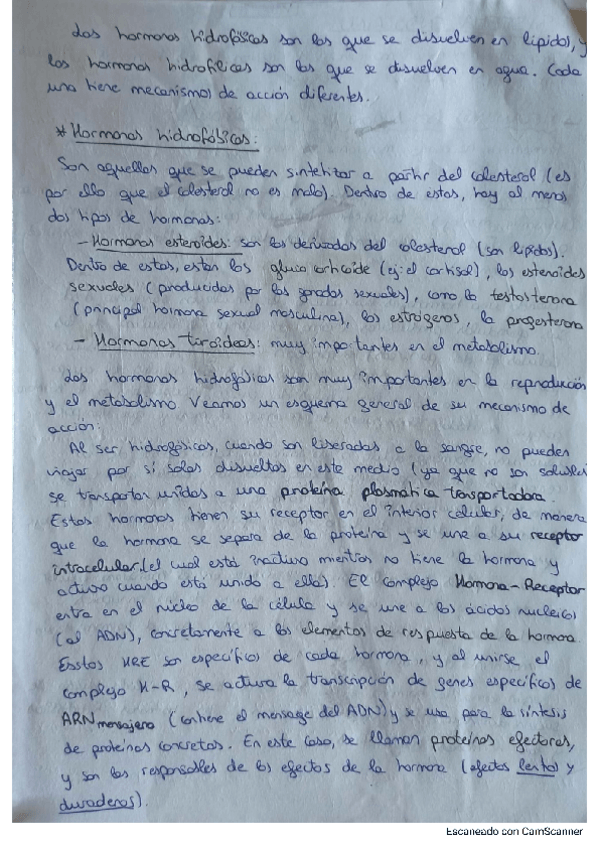 Las hormonas hidrofóbicas son las que se disuelven en lípidos, y
las hormonas hidrofílicas son las que se disuelven en agua. Cada
una tiene mecanismos de acción diferentes.
* Hormonas hidrofóbicas:
Son aquellas que se pueden sintetizar a partir del colesterol (es
por ello que el colesterol no es malo). Dentro de estas, hay al menos
dos tipos de hormonas:
- Hormonas esteroides: son las derivadas del colesterol (son lípidos).
Dentro de estas, están los glucocorticoide (ej: el cortisol), los esteroides
sexuales (producidos por las gónadas sexuales), como la testosterona
(principal hormona sexual masculina), los estrógenos, la progesterona
- Hormonas tiroideas: muy importantes en el metabolismo.
Las hormonas hidrofóbicas son muy importantes en la reproducción
y el metabolismo Veamos un esquema general de su mecanismo de
acción:
Al ser hidrofóbicas, cuando son liberadas a la sangre, no pueden
viajar por sí solas disueltas en este medio (ya que no son solubles
se transportan unidas a una proteína plasmática transportadora.
Estas hormonas tienen su receptor en el interior celular, de manera
que la hormona se separa de la proteína y se une a su receptor
intracelular (el cual está inactivo mientras no tiene la hormona y
activo cuando está unido a ella). El complejo Hormona-Receptor
entra en el núcleo de la célula y se une a los ácidos nucleicos
(al ADN), concretamente a los elementos de respuesta de la hormona
Esstos HRE son específicos de cada hormona, y al unirse el
complejo H-R, se activa la transcripción de genes específicos de
ARN mensajero (contiene el mensage del ADN) y se usa para la síntesis
de proteínas concretas. En este caso, se llaman proteínas efectoras,
y son las responsables de los efectos de la hormona (efectos lentos y
duraderos).
Escaneado con CamScanner